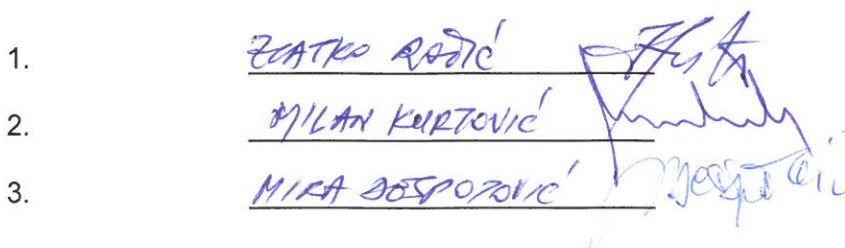 1. ZLATKO RADIĆ
2. MILAN KURTOVIĆ
3. MIRA DESPOTOVIĆ